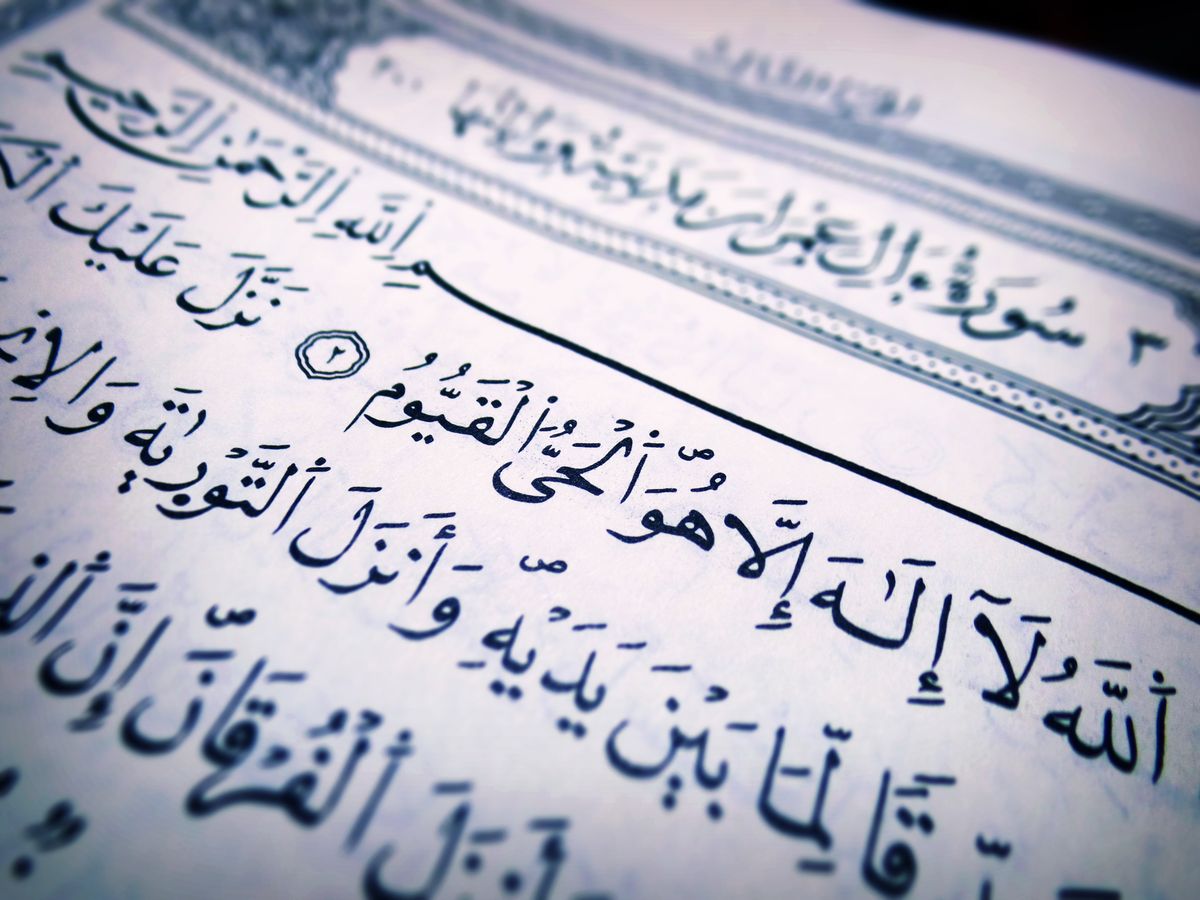 ٣ سُورَةُ ءَالِ عِمْرَانَ مَدَنِيَّةٌ وَءَايَاتُهَا ٢٠٠
بِسْمِ اللَّهِ الرَّحْمَٰنِ الرَّحِيمِ
ٱللَّهُ لَآ إِلَـٰهَ إِلَّا هُوَ ٱلْحَىُّ ٱلْقَيُّومُ ٢ نَزَّلَ عَلَيْكَ
قًا لِّمَا بَيْنَ يَدَيْهِ وَأَنزَلَ ٱلتَّوْرَىٰةَ
وَأَنزَلَ ٱلْفُرْقَانَ إِنَّ